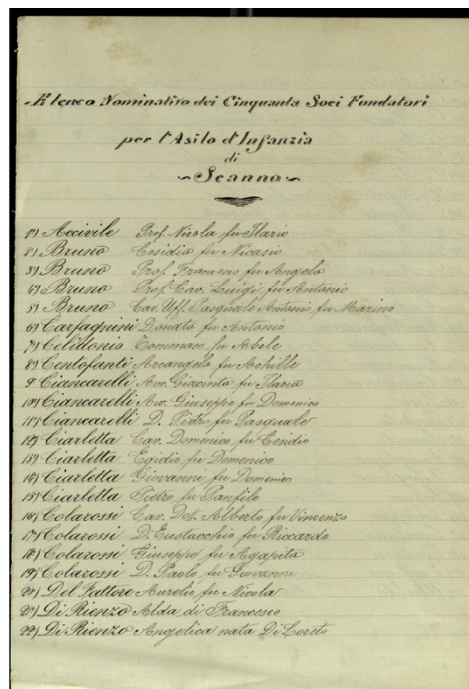 Elenco Nominativo dei Cinquanta Soci Fondatori
per l'Asilo d'Infanzia
di
~Scanno~
1º) Accivile Prof. Nicola fu Ilario
2º) Bruno Cesidio fu Nicasio
3º) Bruno Prof. Francesco fu Angelo
4º) Bruno Prof. Cav. Luigi fu Antonio
5º) Bruno Cav. Uff. Pasquale Antonio fu Marino
6º) Carfagnini Donato fu Antonio
7º) Celidonio Tommaso fu Abele
8º) Centofanti Arcangelo fu Achille
9º Ciancarelli Avv. Giacinto fu Ilario
10º) Ciancarelli Avv. Giuseppe fu Domenico
11º) Ciancarelli D. Pietro fu Pasquale
12º) Ciarletta Cav. Domenico fu Cesidio
13º) Ciarletta Egidio fu Domenico
14º) Ciarletta Giovanni fu Domenico
15º) Ciarletta Pietro fu Panfilo
16º) Colarossi Cav. Dott. Alberto fu Vincenzo
17º) Colarossi D. Eustacchio fu Riccardo
18º) Colarossi Giuseppe fu Agapito
19º) Colarossi D. Paolo fu Giovanni
20º) Del Fattore Aurelio fu Nicola
21º) Di Rienzo Alda di Francesco
22º) Di Rienzo Angelica nata Di Loreto